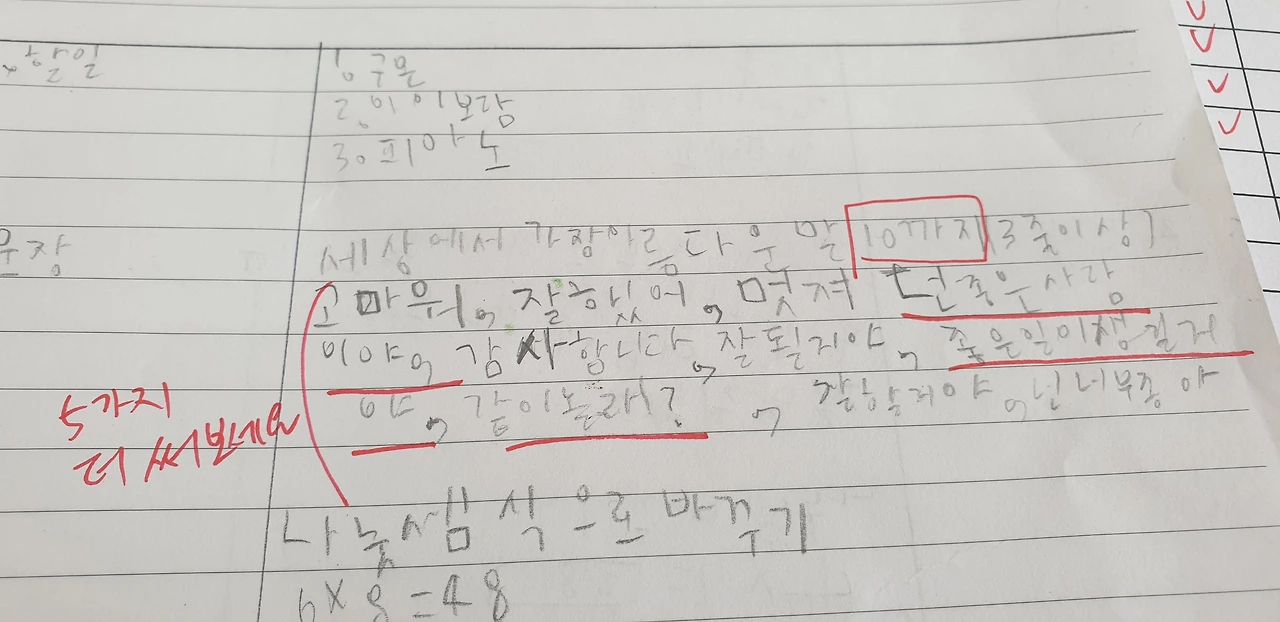 3. 피아노
세상에서 가장 아름다운 말 10가지(5줄이상)
고마워, 잘했어, 멋져 넌 좋은 사람
이야, 감사합니다, 잘될거야, 좋은일이생길거
야, 같이놀래?, 잘할거야,
5가지
더 써보세요
나눗셈식으로 바꾸기
6×8=48